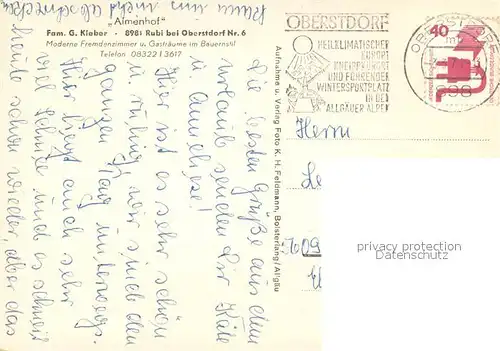 „Almenhof"
Fam. G. Kleber - 8981 Rubi bei Oberstdorf Nr. 6
Moderne Fremdenzimmer u. Gasträume im Bauernstil
Telefon 08322 / 3617
Die besten Grüße aus dem
Urlaub senden Dir Käte
u. Annchese!
Hier ist es sehr schön
u. ruhig, wir sind den
ganzen Tag unterwegs.
Hier liegt auch sehr
viel Schnee und es schneit
heute schon wieder, aber das
kann uns nicht abschrecken
Aufnahme u. Verlag Foto K. H. Feldmann, Bolsterlang/Allgäu
OBERSTDORF
HEILKLIMATISCHER
KURORT
KNEIPPKURORT
UND FÜHRENDER
WINTERSPORTPLATZ
IN DEN
ALLGÄUER ALPEN
OBERSTDORF
898
40
Herrn
609
privacy protection
Datenschutz